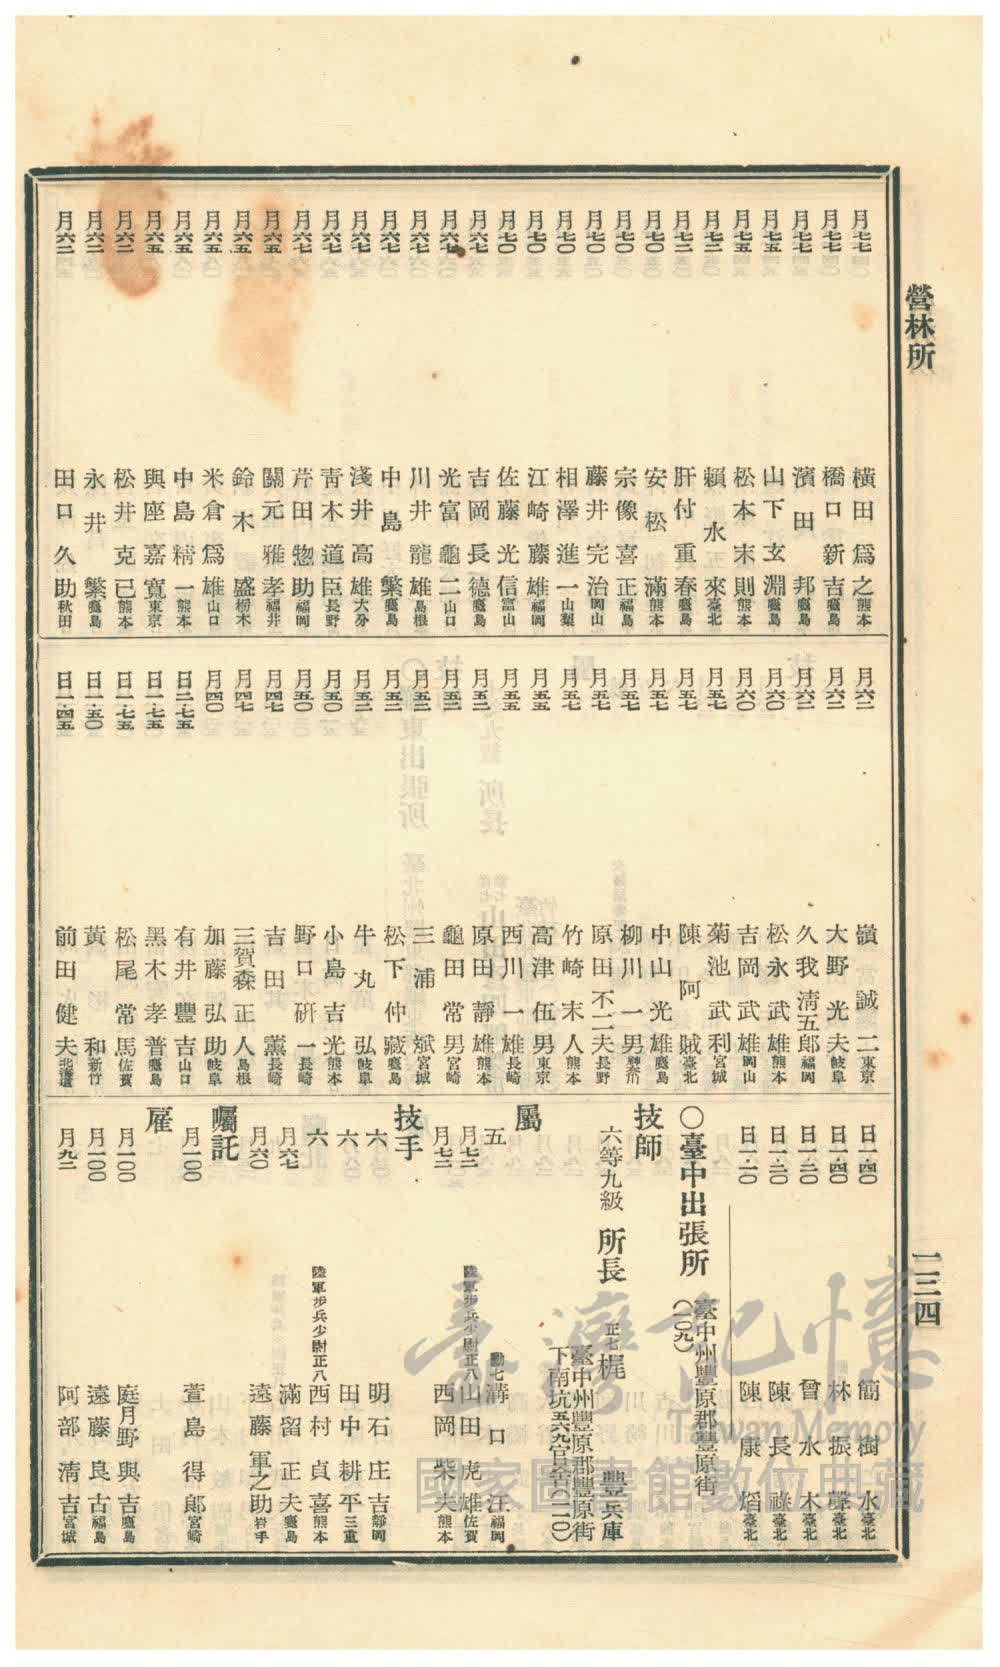 營林所
二三四
月七七 橫田爲之 熊本
月七七 橋口新吉 鹿兒島
月七七 濱田邦 鹿兒島
月七五 山下玄淵 鹿兒島
月七五 松本末則 熊本
月七二 賴水來 臺北
月七二 肝付重春 鹿兒島
月七〇 安松滿 熊本
月七〇 宗像喜正 福岡
月七〇 藤井完治 岡山
月七〇 相澤進一 山梨
月七〇 江崎藤雄 福岡
月七〇 佐藤光信 富山
月六七 吉岡長德 鹿兒島
月六七 光富龜二 山口
月六七 川井龍雄 島根
月六七 中島繁 鹿兒島
月六七 淺井高雄 大分
月六七 靑木道臣 長野
月六七 芹田惣助 福岡
月六五 關元雅孝 福井
月六五 鈴木盛 栃木
月六五 米倉爲雄 山口
月六五 中島精一 熊本
月六五 與座嘉寬 東京
月六二 松井克已 熊本
月六二 永井繁 鹿兒島
月六二 田口久助 秋田
月六二 嶺誠二 東京
月六二 大野光夫 岐阜
月六二 久我淸五郞 福岡
月六〇 松永武雄 熊本
月六〇 吉岡武雄 岡山
月五七 菊池武利 宮城
月五七 陳阿賊 臺北
月五七 中山光雄 鹿兒島
月五七 柳川一男 神奈川
月五七 原田不二夫 長野
月五五 竹崎末人 熊本
月五五 高津伍男 東京
月五五 西川一雄 長崎
月五二 原田靜雄 熊本
月五二 龜田常男 宮崎
月五二 三浦斌 宮城
月五二 松下仲藏 鹿兒島
月五二 牛丸弘 岐阜
月五〇 小島吉光 熊本
月五〇 野口硏一 長崎
月四七 吉田薰 長崎
月四七 三賀森正人 島根
月四〇 加藤弘助 岐阜
日二・七五 有井豐吉 山口
日一・七五 黑木孝普 鹿兒島
日一・七五 松尾常馬 佐賀
日一・五〇 黃和 新竹
日一・四五 前田健夫 北海道
日一・四〇 簡樹水 臺北
日一・四〇 林振聲 臺北
日一・二〇 曾水木 臺北
日一・二〇 陳長祿 臺北
日一・二〇 陳康熖 臺北
〇臺中出張所 臺中州豐原郡豐原街
(一〇九)
技師
六等九級 所長 正七 梶豐 兵庫
臺中州豐原郡豐原街
下南坑五六九官舍(一一〇)
屬
五 勳七 溝口汪 福岡
月七二 陸軍步兵少尉正八 山田虎雄 佐賀
月七二 西岡柴夫 熊本
技手
六 明石庄吉 靜岡
六 田中耕平 三重
六 陸軍步兵少尉正八 西村貞喜 熊本
月六七 滿留正夫 鹿兒島
月六〇 遠藤軍之助 岩手
囑託
月一〇〇 萱島得郞 宮崎
雇
月一〇〇 庭月野與吉 鹿兒島
月一〇〇 遠藤良古 福島
月九二 阿部淸吉 宮城
臺灣記憶
Taiwan Memory
國家圖書館數位典藏